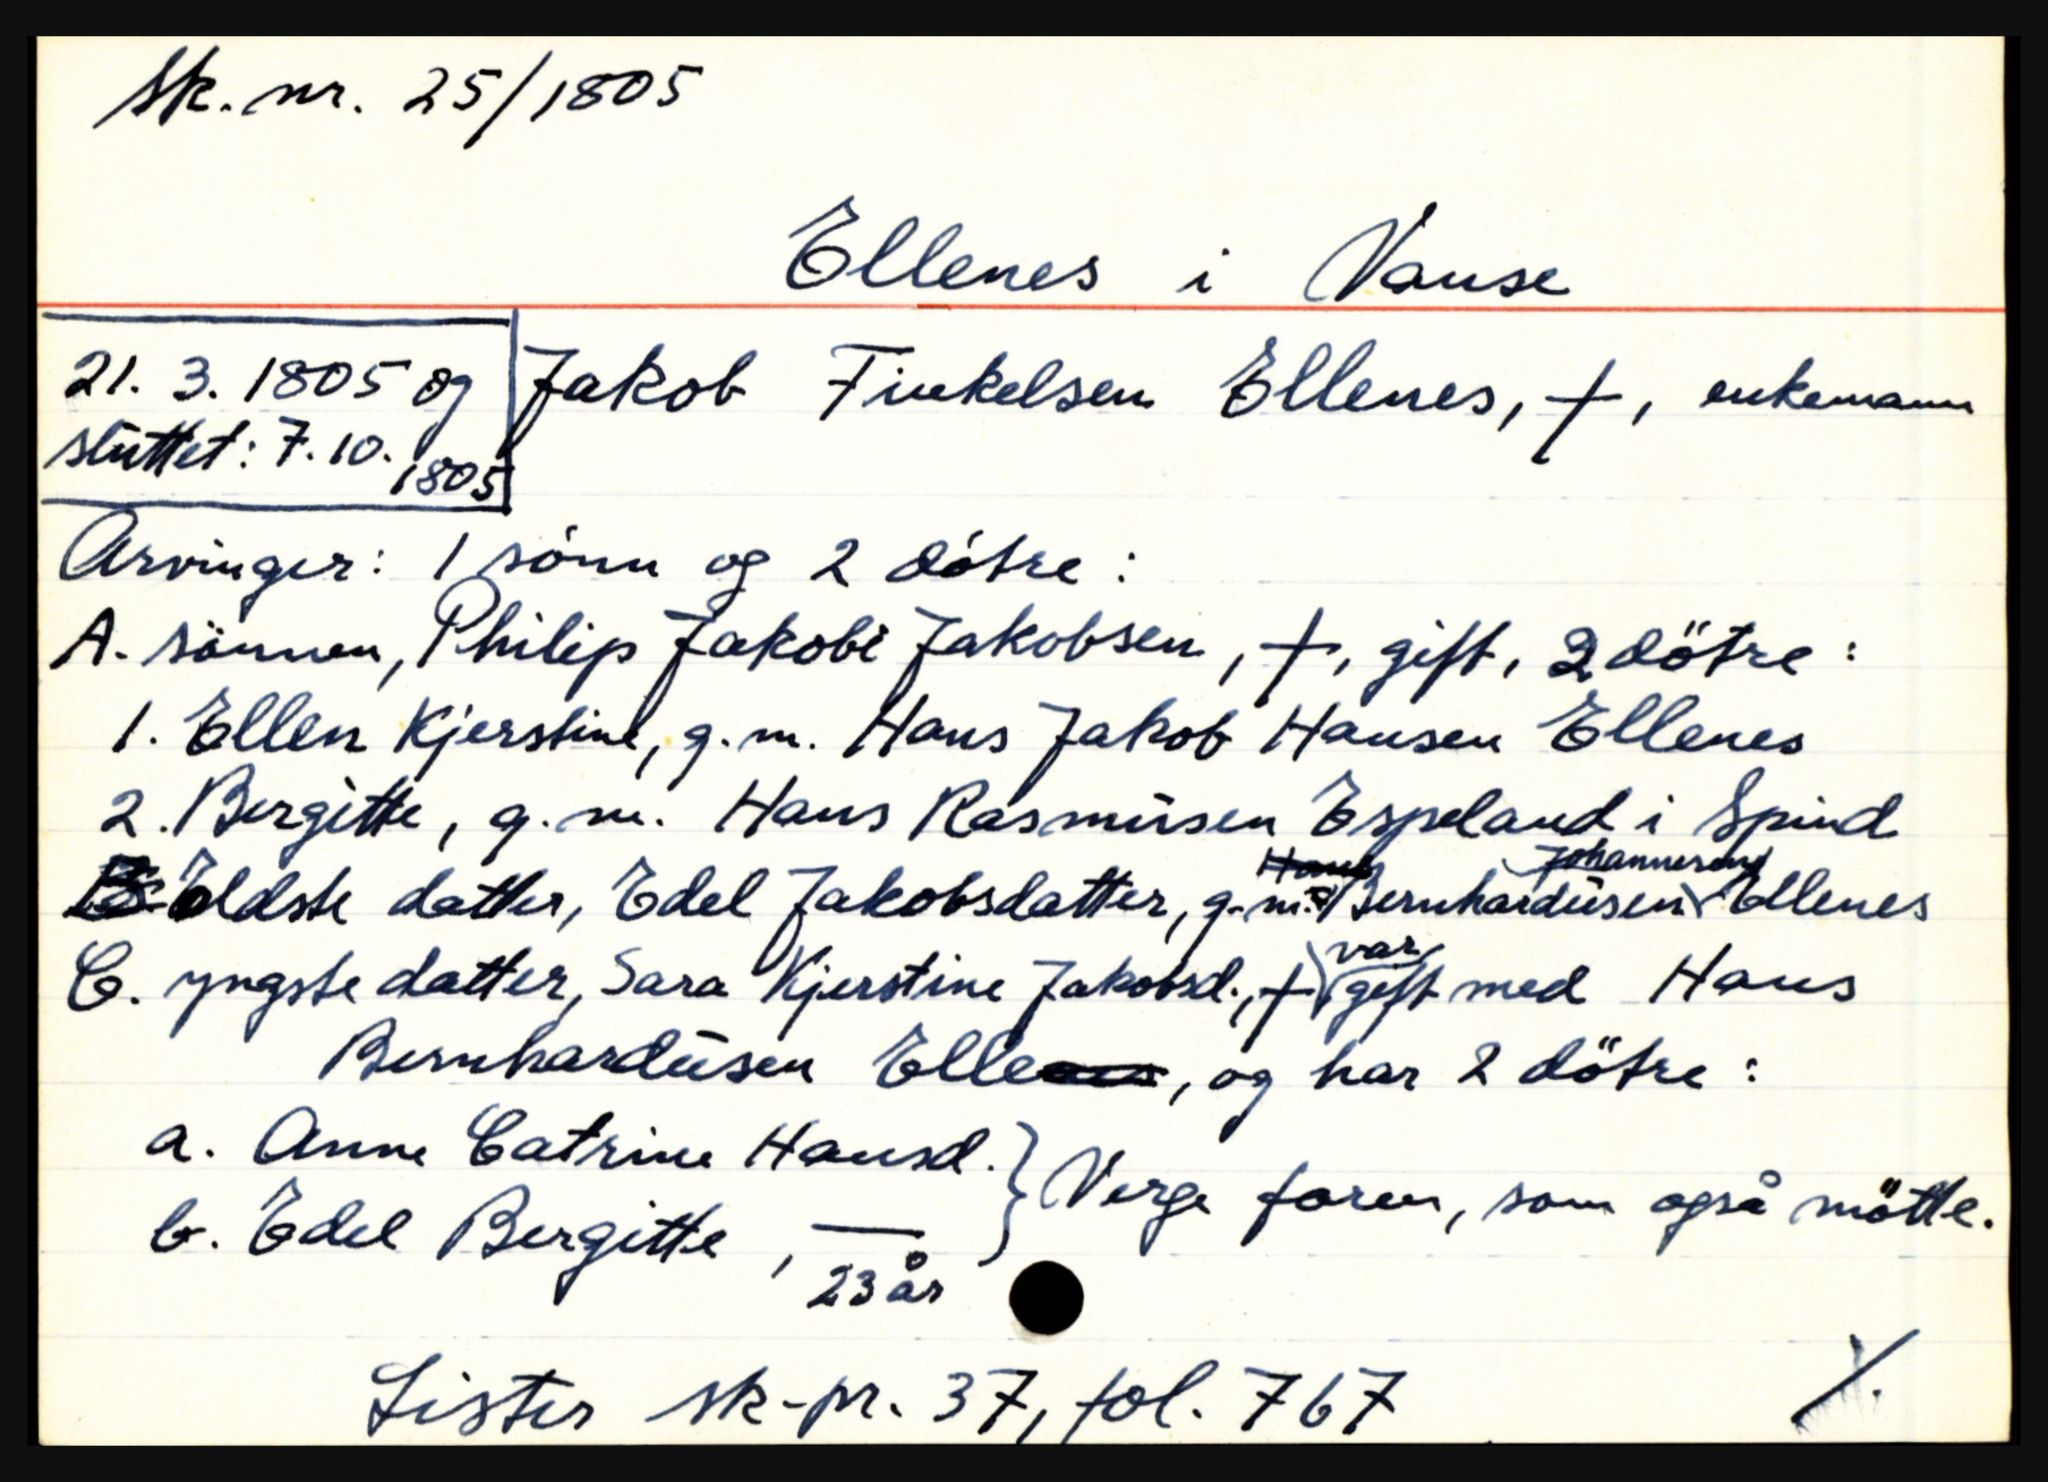 Sk. nr. 25/1805
Ellenes i Vanse
21. 3. 1805 og
sluttet: 7. 10. 1805
Jakob Finkelsen Ellenes, †, enkemann
Arvinger: 1 sónn og 2 dótre:
A. sönnen, Philip Jakobi Jakobsen, †, gift, 2 dötre:
1. Ellen Kjerstine, g. m. Hans Jakob Hansen Ellenes
2. Bergitte, g. m. Hans Rasmusen Espeland i Spind
B Eldste datter, Edel Jakobsdatter, g. m. Hans Bernhardusen Ellenes
C. yngste datter, Sara Kjerstine Jakobsd., † var gift med Hans
Bernhardusen Ellenes, og har 2 dötre:
a. Anne Catrine Hansd.
b. Edel Bergitte, —
23 år
} Verge faren, som også mötte.
Lister sk-pr. 37, fol. 767